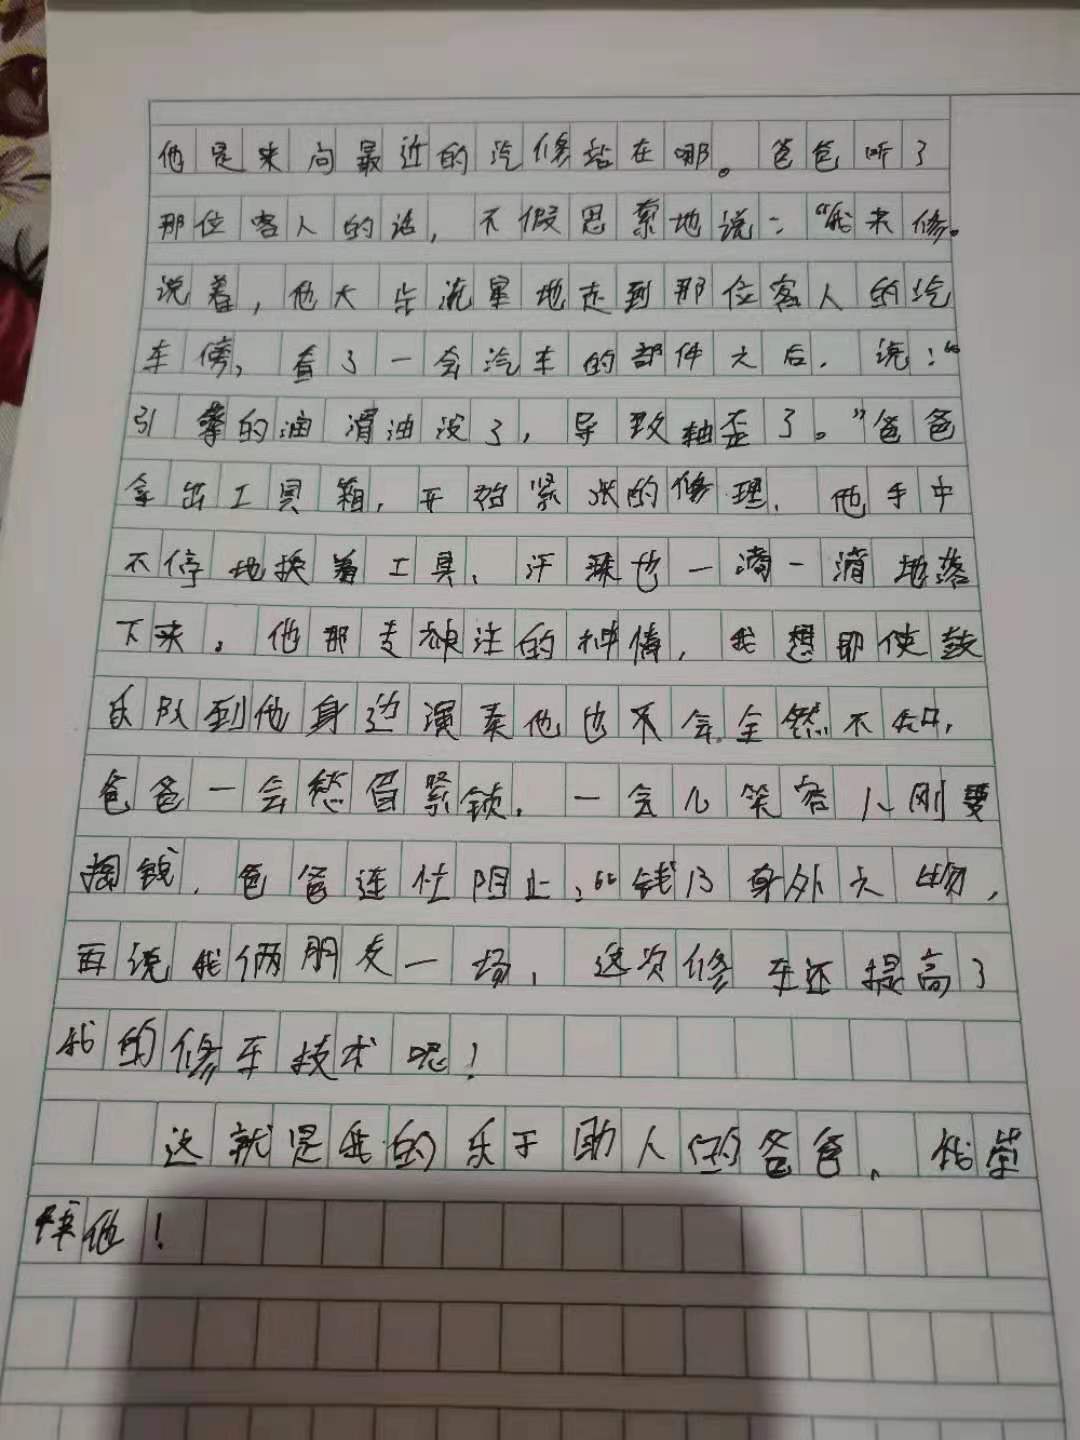 他是来问最近的汽修站在哪。爸爸听了
那位客人的话，不假思索地说：“我来修。
说着，他大步流星地走到那位客人的汽
车傍，查了一会汽车的部件之后，说：“
引擎的油滑油没了，导致轴歪了。”爸爸
拿出工具箱，开始紧张的修理，他手中
不停地换着工具，汗珠也一滴一滴地落
下来。他那专神注的神情，我想即使鼓
乐队到他身边演奏他也不会全然不知，
爸爸一会愁眉紧锁，一会儿笑客人刚要
掏钱，爸爸连忙阻止，“钱乃身外之物，
再说我俩朋友一场，这次修车还提高了
我的修车技术呢！
这就是我的乐于助人的爸爸，我崇
拜他！